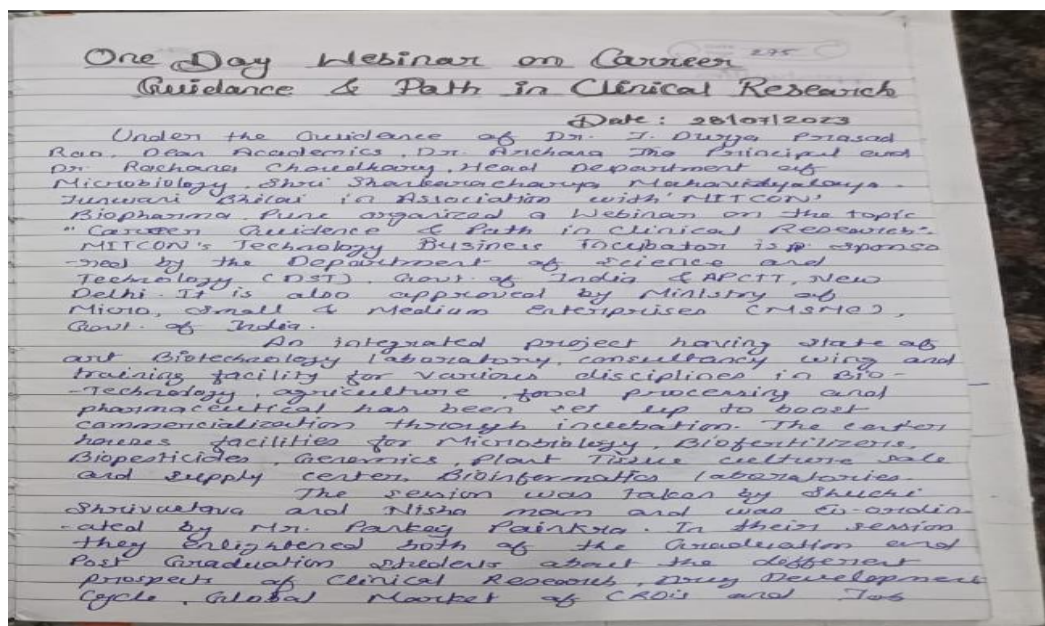 275
One Day Webinar on Carreer
Guidance & Path in Clinical Research
Date: 28/07/2023
Under the Guidance of Dr. J. Durga Prasad
Rao, Dean Academics, Dr. Archana Jha Principal and
Dr. Rachana Choudhary, Head Department of
Microbiology, Shri Shankaracharya Mahavidyalaya
Junwani Bhilai in Association with 'MITCON'
Biopharma Pune organized a Webinar on the topic
"Carreer Guidence & Path in Clinical Research".
MITCON's Technology Business Incubator is sponso
-red by the Department of Science and
Technology (DST), Govt. of India & APCTT, New
Delhi. It is also approved by Ministry of
Micro, Small & Medium Enterprises (MSME),
Govt. of India.
An integrated project having state of
art Biotechnology laboratory, consultancy wing and
training facility for various disciplines in Bio-
-Technology, agriculture, food processing and
pharmaceutical has been set up to boost
commercialization through incubation. The center
houses facilities for Microbiology, Biofertilizers,
Biopesticides, Genomics, Plant Tissue culture sale
and supply center, Bioinformatics laboratories.
The session was taken by Shuchi
Shrivastava and Nisha mam and was co-ordin
-ated by Mr. Pankaj Painkra. In their session
they enlightened both of the Graduation and
Post Graduation students about the different
prospects of Clinical Research, Drug Development
Cycle, Global Market of CRO's and Job